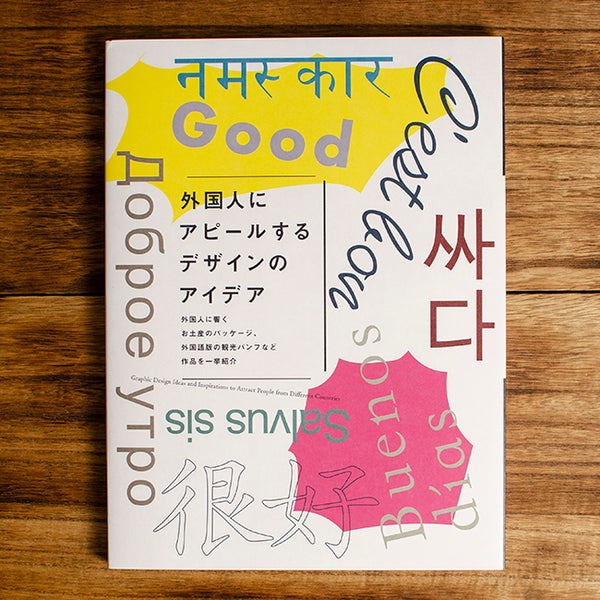 नमस्कार
Good
C'est bon
Доброе утро
外国人に
アピールする
デザインの
アイデア
外国人に響く
お土産のパッケージ、
外国語版の観光パンフなど
作品を一挙紹介
싸다
Graphic Design Ideas and Inspirations to Attract People from Different Countries
Buenos
días
Salvus sis
很好